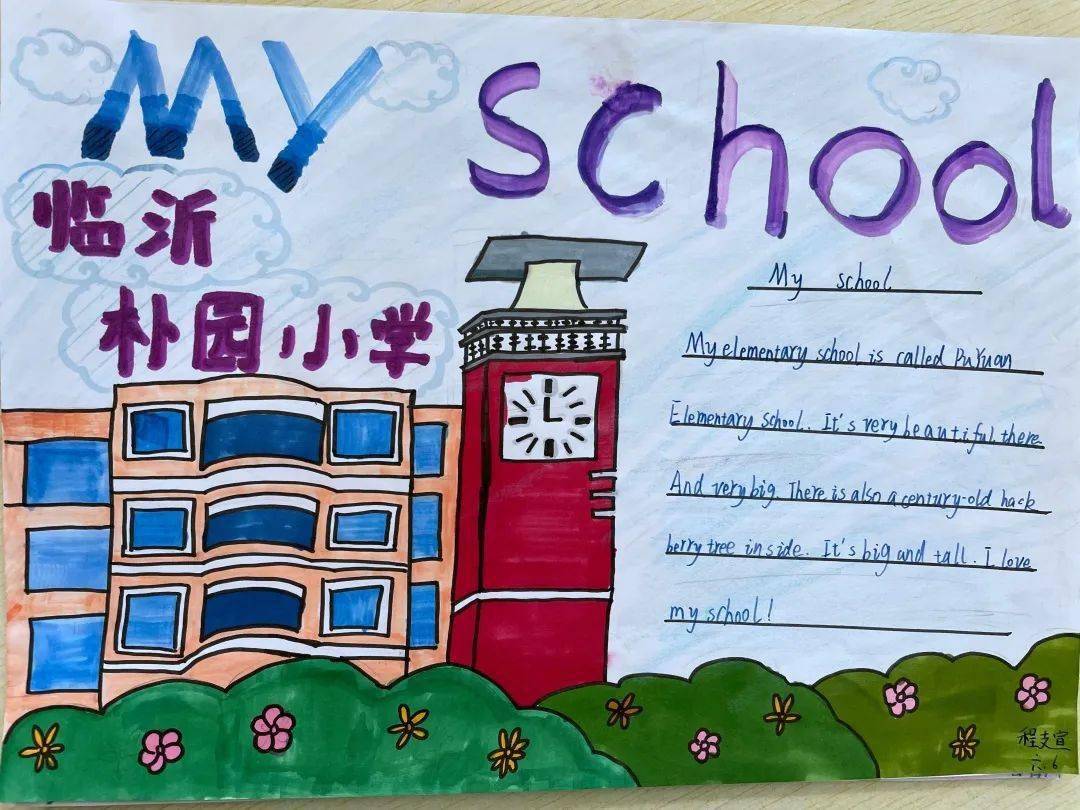 My school
临沂
朴园小学
My school
My elementary school is called Pu Yuan
Elementary school. It's very beautiful there.
And very big. There is also a century-old hack
berry tree inside. It's big and tall. I love
my school!
六.6